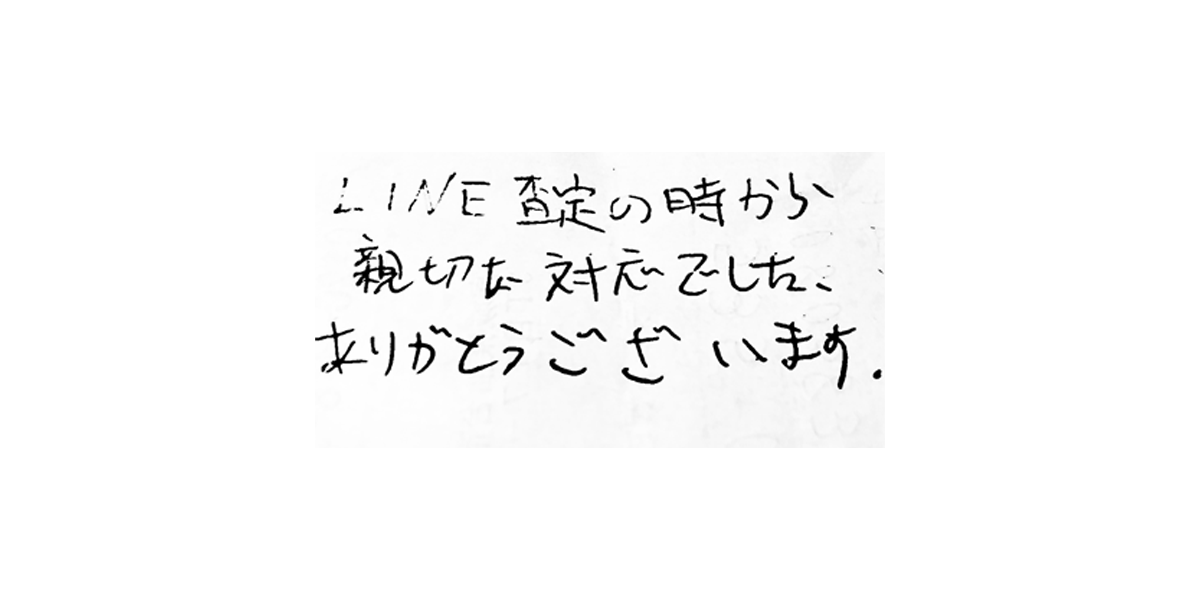 LINE査定の時から
親切な対応でした、
ありがとうございます.